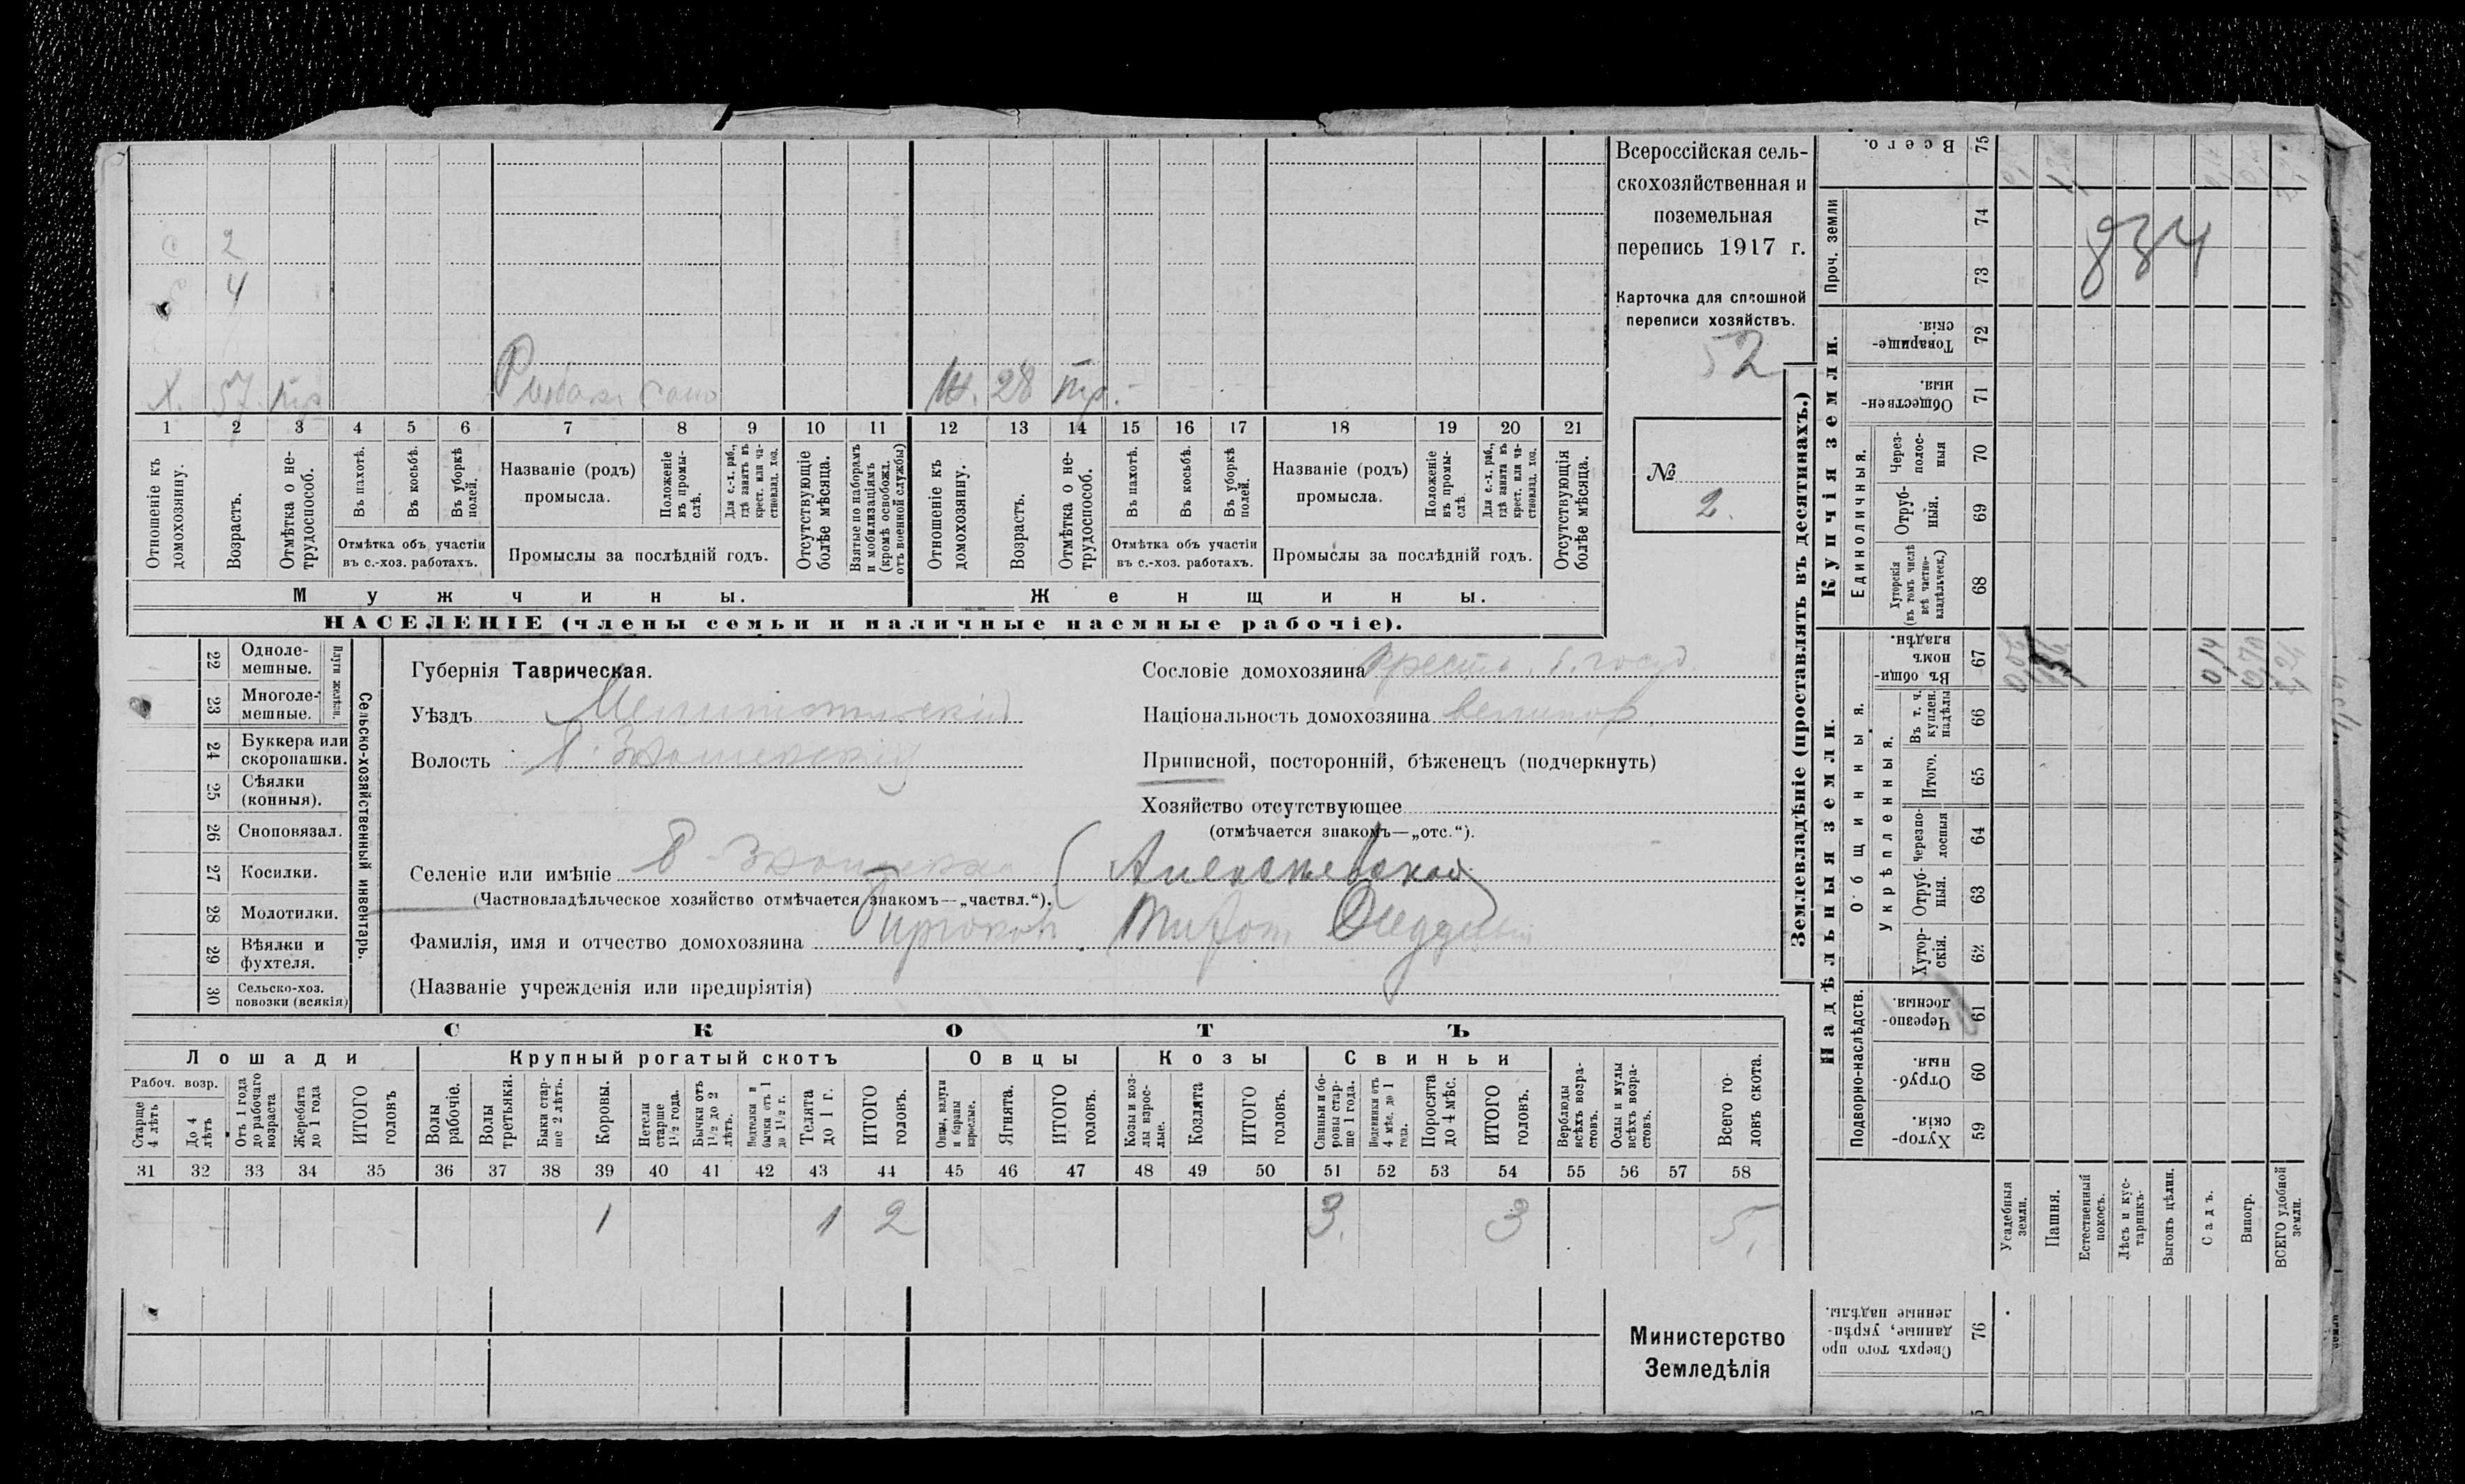 Всероссійская сель-
скохозяйственная и
поземельная
перепись 1917 г.
Карточка для сплошной
переписи хозяйствъ.
52
№
2.
834
с 2
4
Х. 57. тр Рыбак
Ж. 28 тр.
1 2 3 4 5 6 7 8 9 10 11 12 13 14 15 16 17 18 19 20 21
Отношеніе къ
домохозяину.
Возрастъ.
Отмѣтка о не-
трудоспособ.
Въ пахотѣ.
Въ косьбѣ.
Въ уборкѣ
полей.
Отмѣтка объ участіи
въ с.-хоз. работахъ.
Названіе (родъ)
промысла.
Положеніе
въ промы-
слѣ.
Для с.-х. раб.,
гдѣ занятъ въ
крест. или ча-
стновлад. хоз.
Промыслы за послѣдній годъ.
Отсутствующіе
болѣе мѣсяца.
Взятые по наборамъ
и мобилизаціямъ
(кромѣ освобожд.
отъ военной службы)
Отношеніе къ
домохозяину.
Возрастъ.
Отмѣтка о не-
трудоспособ.
Въ пахотѣ.
Въ косьбѣ.
Въ уборкѣ
полей.
Отмѣтка объ участіи
въ с.-хоз. работахъ.
Названіе (родъ)
промысла.
Положеніе
въ промы-
слѣ.
Для с.-х. раб.,
гдѣ занята въ
крест. или ча-
стновлад. хоз.
Промыслы за послѣдній годъ.
Отсутствующія
болѣе мѣсяца.
Мужчины.
Женщины.
НАСЕЛЕНІЕ (члены семьи и наличные наемные рабочіе).
22 Однoле-
мешные.
23 Многоле-
мешные.
Плуги желѣзн.
24 Буккера или
скоропашки.
25 Сѣялки
(конныя).
26 Сноповязал.
27 Косилки.
28 Молотилки.
29 Вѣялки и
фухтеля.
30 Сельско-хоз.
повозки (всякія)
Сельско-хозяйственный инвентарь.
Губернія Таврическая.
Уѣздъ Мелитопольскій
Волость
Селеніе или имѣніе
(Частновладѣльческое хозяйство отмѣчается знакомъ—„частвл.“).
Фамилія, имя и отчество домохозяина
(Названіе учрежденія или предпріятія)
Сословіе домохозяина крест. б. госуд.
Національность домохозяина великор.
Приписной, посторонній, бѣженецъ (подчеркнуть)
Хозяйство отсутствующее
(отмѣчается знакомъ—„отс.“).
СКОТЪ
Лошади
Рабоч. возр.
Старше
4 лѣтъ
До 4
лѣтъ
Отъ 1 года
до рабочаго
возраста
Жеребята
до 1 года
ИТОГО
головъ
Крупный рогатый скотъ
Волы
рабочіе.
Волы
третьяки.
Быки стар-
ше 2 лѣтъ.
Коровы.
Нетели
старше
1½ года.
Бычки отъ
1½ до 2
лѣтъ.
Подтелки и
бычки отъ 1
до 1½ г.
Телята
до 1 г.
ИТОГО
головъ.
Овцы
Овцы, валухи
и бараны
взрослые.
Ягнята.
ИТОГО
головъ.
Козы
Козы и коз-
лы взрос-
лые.
Козлята
ИТОГО
головъ.
Свиньи
Свиньи и бо-
ровы стар-
ше 1 года.
Подсвинки отъ
4 мѣс. до 1
года.
Поросята
до 4 мѣс.
ИТОГО
головъ.
Верблюды
всѣхъ возра-
стовъ.
Ослы и мулы
всѣхъ возра-
стовъ.
Всего го-
ловъ скота.
31 32 33 34 35 36 37 38 39 40 41 42 43 44 45 46 47 48 49 50 51 52 53 54 55 56 57 58
1 1 2 3. 3 5.
Министерство
Земледѣлія
Землевладѣніе (проставлять въ десятинахъ.)
Купчія земли.
Надѣльныя земли.
Всего. 75
Проч. земли 74
73
Товарище-
скія. 72
Обществен-
ныя. 71
Единоличныя.
Через-
полос-
ныя 70
Отруб-
ныя. 69
Хуторскія
(въ томъ числѣ
всѣ частно-
владѣльческ.) 68
Общинныя.
Въ общин-
номъ
владѣн. 67
Укрѣпленныя.
Въ т. ч.
куплен.
надѣлы 66
Итого. 65
Черезпо-
лосныя 64
Отруб-
ныя. 63
Хутор-
скія. 62
Подворно-наслѣдств.
Черезпо-
лосныя. 61
Отруб-
ныя. 60
Хутор-
скія. 59
0,14
Усадебныя
земли.
Пашня.
Естественный
покосъ.
Лѣсъ и кус-
тарникъ.
Выгонъ цѣлин.
Садъ.
Виногр.
ВСЕГО удобной
земли.
Сверхъ того про
данные, укрѣп-
ленные надѣлы. 76